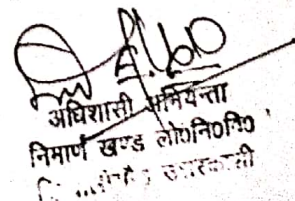 अधिशासी अभियन्ता
निर्माण खण्ड लो०नि०वि०
उत्तरकाशी